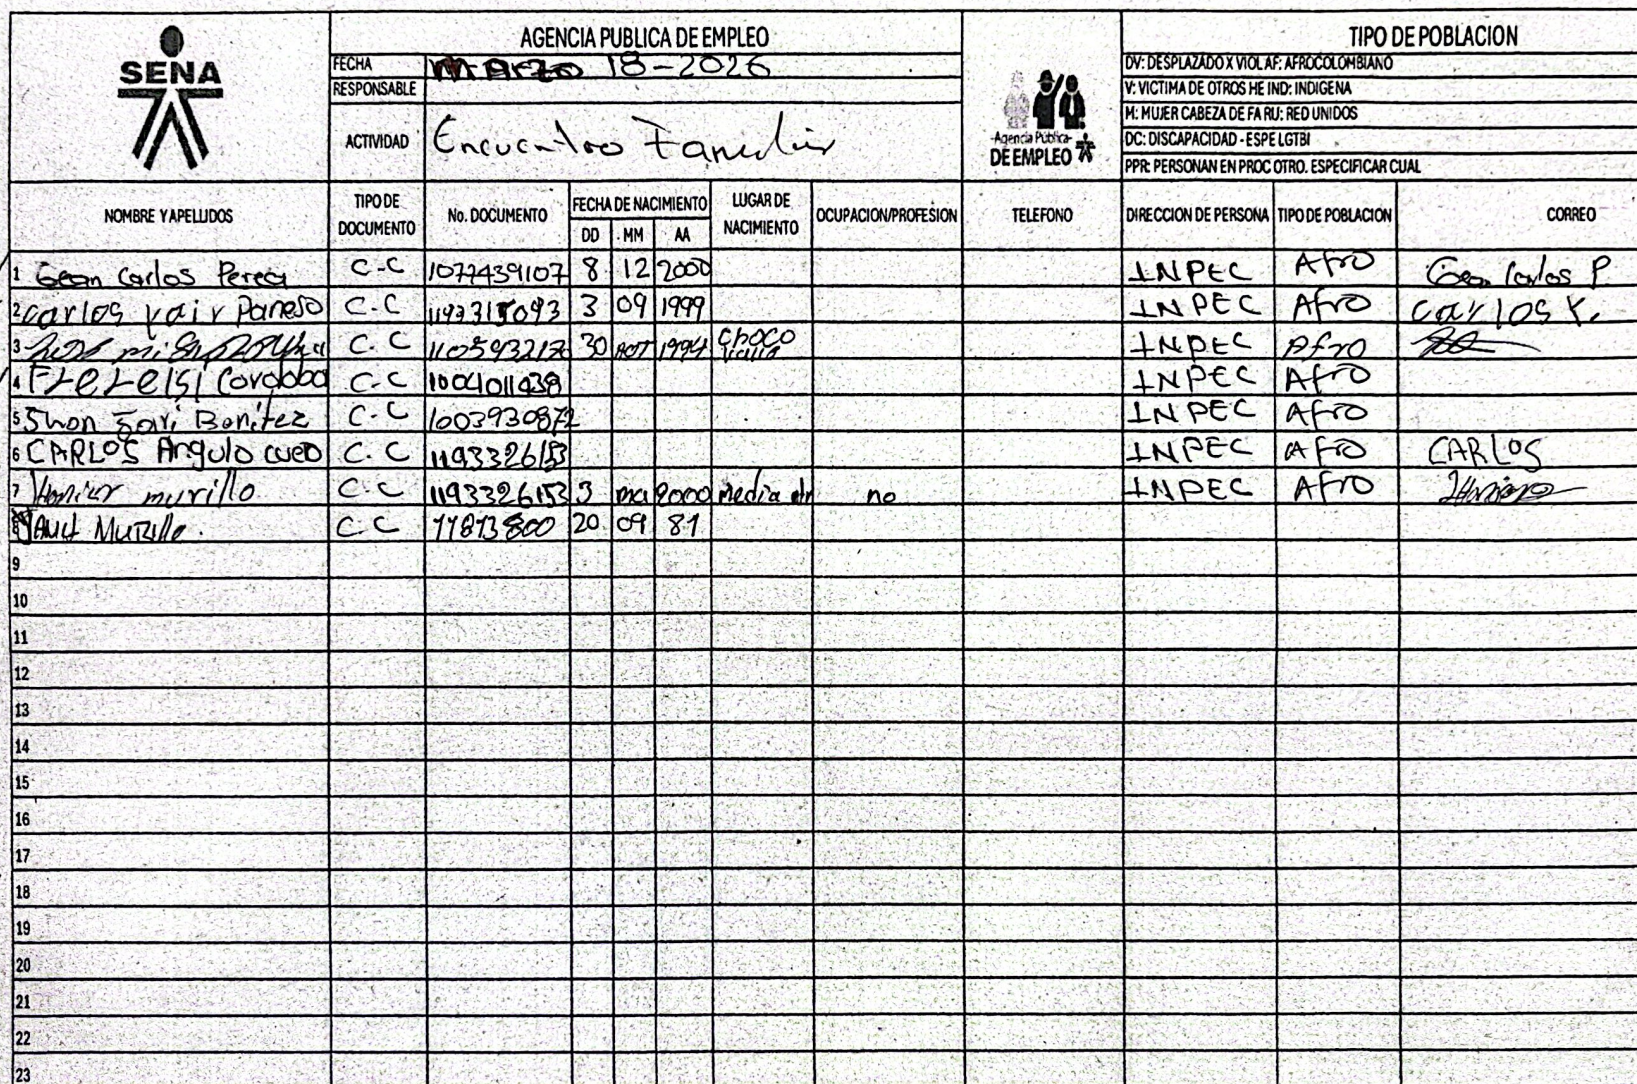 SENA
AGENCIA PUBLICA DE EMPLEO
FECHA marzo 18-2026
RESPONSABLE
ACTIVIDAD Encuentro Familiar
Agencia Pública
DE EMPLEO
TIPO DE POBLACION
DV: DESPLAZADO X VIOL AF: AFROCOLOMBIANO
V: VICTIMA DE OTROS HE IND: INDIGENA
M: MUJER CABEZA DE FA RU: RED UNIDOS
DC: DISCAPACIDAD - ESPE LGTBI
PPR: PERSONAN EN PROC OTRO. ESPECIFICAR CUAL
NOMBRE Y APELLIDOS TIPO DE DOCUMENTO No. DOCUMENTO FECHA DE NACIMIENTO DD MM AA LUGAR DE NACIMIENTO OCUPACION/PROFESION TELEFONO DIRECCION DE PERSONA TIPO DE POBLACION CORREO
1 Gean Carlos Perea C-C 1077439107 8 12 2000 INPEC Afro Gean Carlos P.
2 carlos yair Paneso C.C 3 09 1999 INPEC Afro carlos Y.
3 C.C 30 1994 choco INPEC Afro
4 Cordoba C-C INPEC Afro
5 Shon Benitez C-C 1003930872 INPEC Afro
6 CARLOS Angulo cueo C.C 1193326153 INPEC Afro CARLOS
7 murillo C.C 1193326153 3 ma 2000 media no INPEC Afro
8 Murillo. C.C 11813800 20 09 81
9
10
11
12
13
14
15
16
17
18
19
20
21
22
23